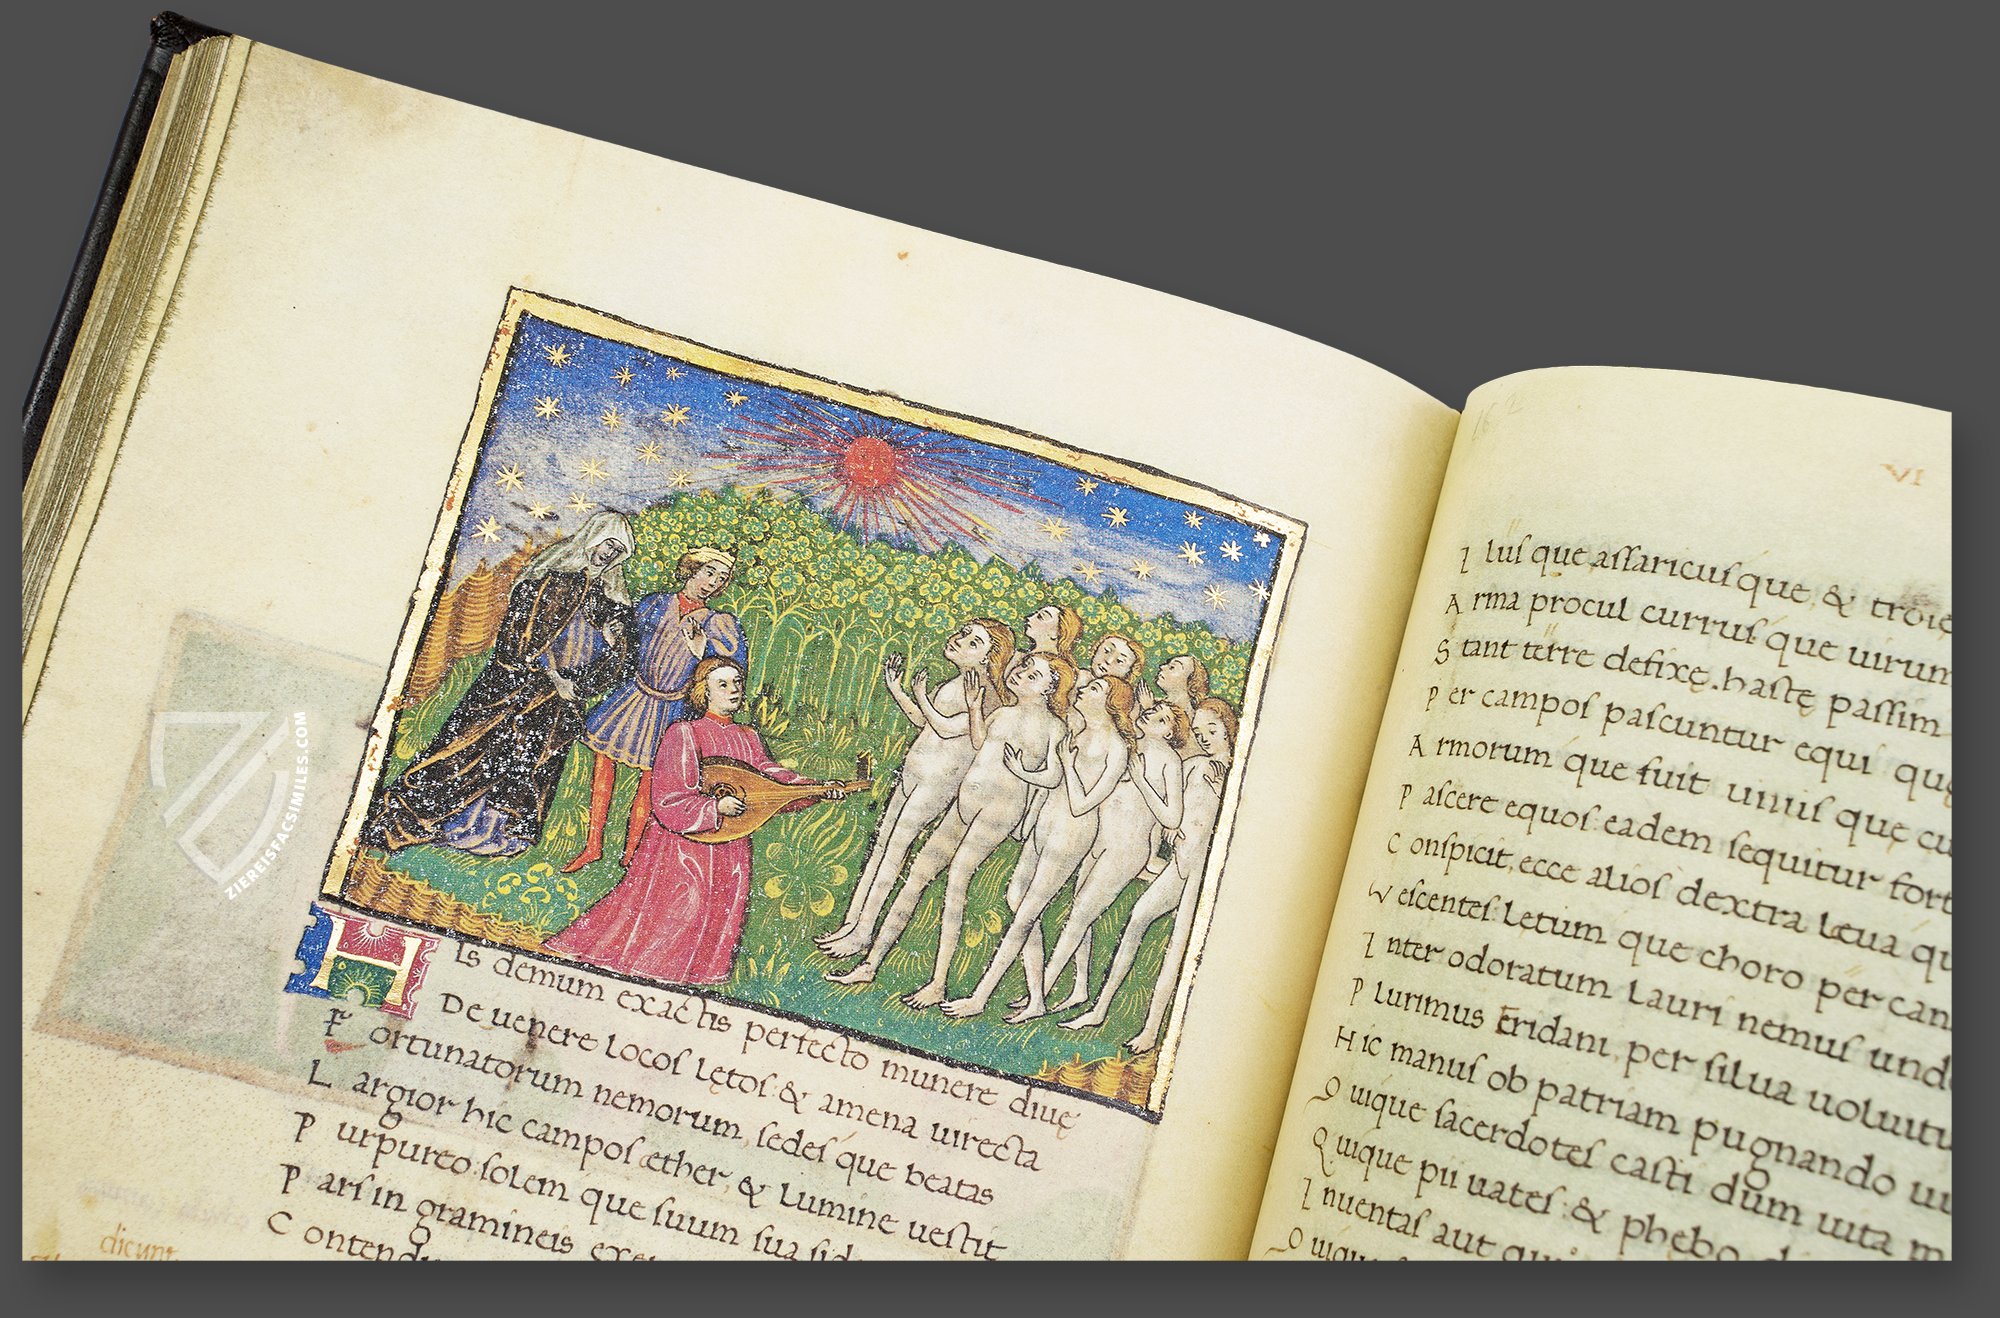 ZIEREISFACSIMILES.COM
HIs demum exactis perfecto munere diuę
De uenere locos lętos & amena uirecta
Fortunatorum nemorum sedes que beatas
Largior hic campos æther & lumine uestit
Purpureo solem que suum sua
Pars in gramineis
dicunt
162
VI
Ilus que assaricus que & troie
Arma procul currus que uirum
Stant terre defixę hastę passim
Per campos pascuntur equi
Armorum que fuit uiuis que
Pascere equos eadem sequitur
Conspicit ecce alios dextra
Vescentes Letum que choro per
Inter odoratum Lauri nemus
Plurimus Eridani per silua
Hic manus ob patriam pugnando
Quique sacerdotes casti dum uita
Quique pii uates & phebo
Inuentas aut
Quique